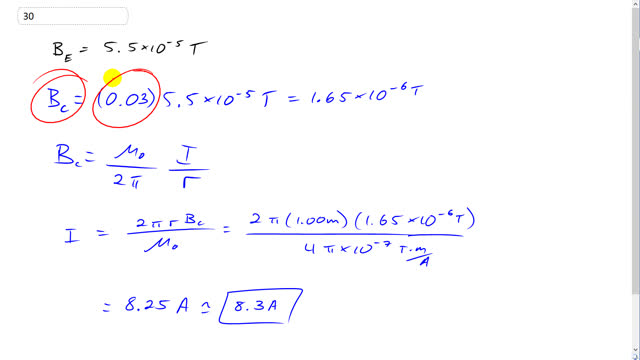 30
B_E = 5.5×10⁻⁵ T
B_C = (0.03) 5.5×10⁻⁵ T = 1.65×10⁻⁶ T
B_C = μ₀/2π I/r
I = 2πrB_C/μ₀ = 2π(1.00m)(1.65×10⁻⁶ T)/4π×10⁻⁷ T·m/A
= 8.25 A ≃ 8.3A